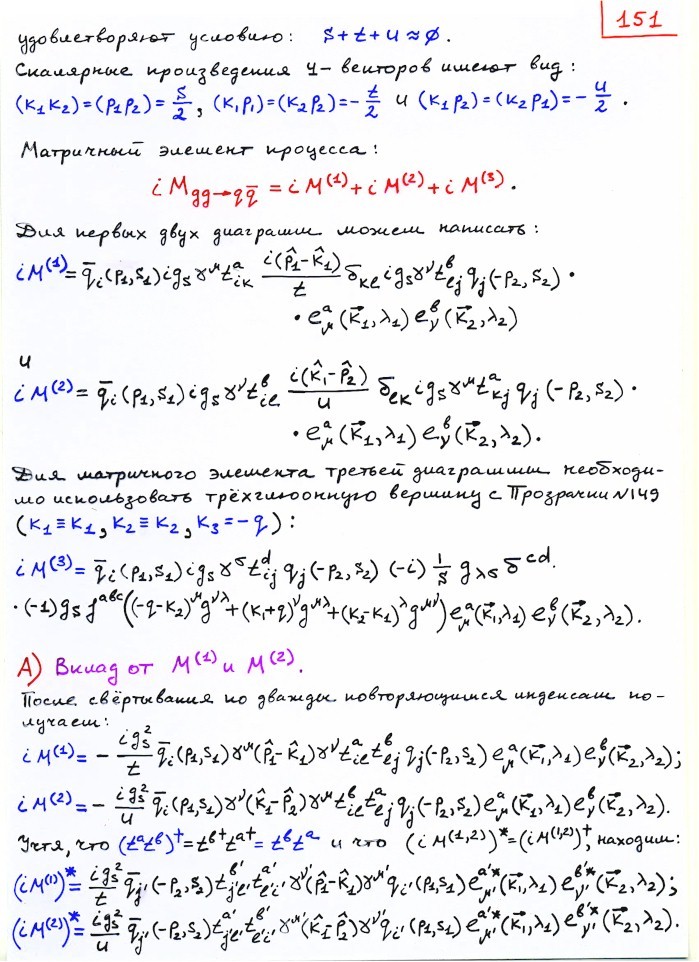 151
удовлетворяют условию: s+t+u≈∅.
Скалярные произведения 4-векторов имеют вид:
(k₁k₂)=(p₁p₂)=s/2, (k₁p₁)=(k₂p₂)=-t/2 и (k₁p₂)=(k₂p₁)=-u/2.
Матричный элемент процесса:
iM_{gg→qq̄} = iM⁽¹⁾+iM⁽²⁾+iM⁽³⁾.
Для первых двух диаграмм можем написать:
iM⁽¹⁾= q̄ᵢ(p₁,s₁)ig_sγ^μt^a_{ik} i(p̂₁-k̂₁)/t δ_{kl}ig_sγ^νt^b_{lj}q_j(-p₂,s₂)·
·e^a_μ(k⃗₁,λ₁)e^b_ν(k⃗₂,λ₂)
и
iM⁽²⁾= q̄ᵢ(p₁,s₁)ig_sγ^νt^b_{il} i(k̂₁-p̂₂)/u δ_{lk}ig_sγ^μt^a_{kj}q_j(-p₂,s₂)·
·e^a_μ(k⃗₁,λ₁)e^b_ν(k⃗₂,λ₂).
Для матричного элемента третьей диаграммы необходи-
мо использовать трёхглюонную вершину с Прозрачки №149
(k₁≡k₁, k₂≡k₂, k₃=-q):
iM⁽³⁾= q̄ᵢ(p₁,s₁)ig_sγ^σt^d_{ij}q_j(-p₂,s₂)(-i)1/s g_{λσ}δ^{cd}.
·(-1)g_sf^{abc}((-q-k₂)^μg^{νλ}+(k₁+q)^νg^{μλ}+(k₂-k₁)^λg^{μν})e^a_μ(k⃗₁,λ₁)e^b_ν(k⃗₂,λ₂).
А) Вклад от M⁽¹⁾ и M⁽²⁾.
После свёртывания по дважды повторяющимся индексам по-
лучаем:
iM⁽¹⁾= -ig_s²/t q̄ᵢ(p₁,s₁)γ^μ(p̂₁-k̂₁)γ^νt^a_{il}t^b_{lj}q_j(-p₂,s₂)e^a_μ(k⃗₁,λ₁)e^b_ν(k⃗₂,λ₂);
iM⁽²⁾= -ig_s²/u q̄ᵢ(p₁,s₁)γ^ν(k̂₁-p̂₂)γ^μt^b_{il}t^a_{lj}q_j(-p₂,s₂)e^a_μ(k⃗₁,λ₁)e^b_ν(k⃗₂,λ₂).
Учтя, что (t^at^b)†=t^{b†}t^{a†}=t^bt^a и что (iM^{(1,2)})*=(iM^{(1,2)})†, находим:
(iM⁽¹⁾)*= ig_s²/t q̄_{j'}(-p₂,s₂)t^{b'}_{j'l'}t^{a'}_{l'i'}γ^{ν'}(p̂₁-k̂₁)γ^{μ'}q_{i'}(p₁,s₁)e^{a'*}_{μ'}(k⃗₁,λ₁)e^{b'*}_{ν'}(k⃗₂,λ₂);
(iM⁽²⁾)*= ig_s²/u q̄_{j'}(-p₂,s₂)t^{a'}_{j'l'}t^{b'}_{l'i'}γ^{μ'}(k̂₁-p̂₂)γ^{ν'}q_{i'}(p₁,s₁)e^{a'*}_{μ'}(k⃗₁,λ₁)e^{b'*}_{ν'}(k⃗₂,λ₂).